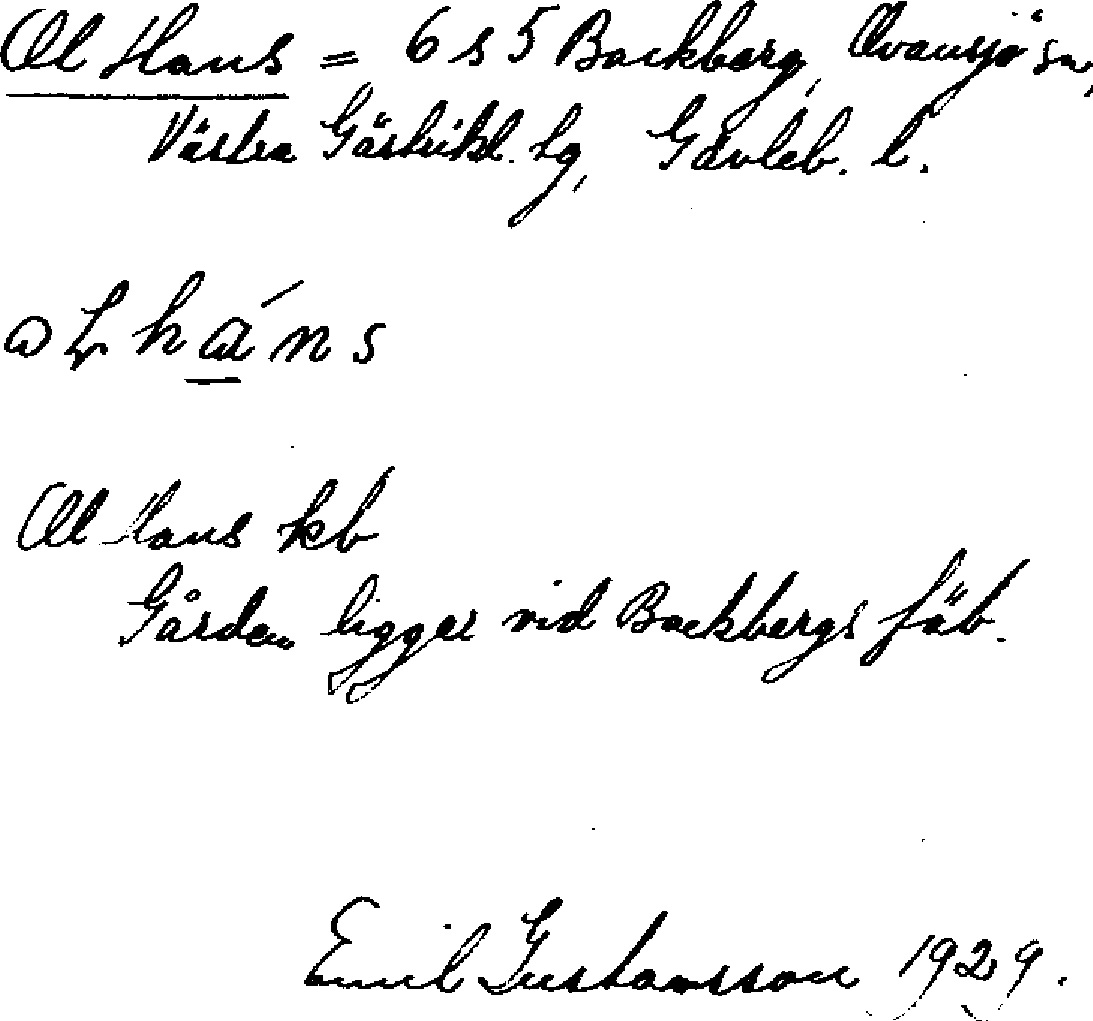 Ol Hans = 6 s 5 Backberg, Ovansjö sn,
Västra Gästrikl. hg, Gävleb. l.
há̱ns
Ol Hans kb
Gården ligger vid Backbergs fäb.
Emil Gustavsson 1929.